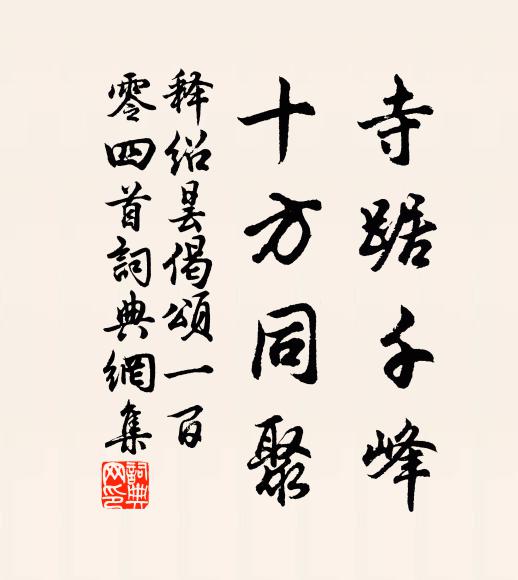 寺踞千峰
十方同聚
释绍昙偈颂一百
零四首詞典網集
詞典网印